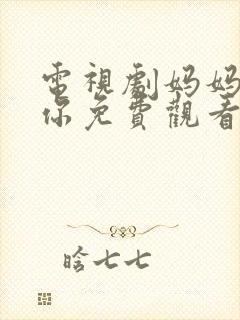 電視劇妈妈
你免費觀看
晗七七